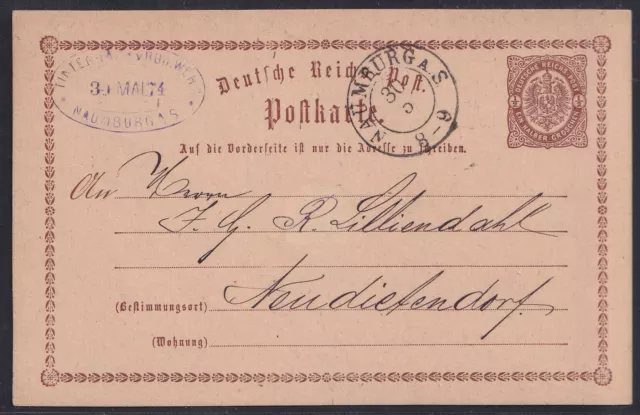 30 MAI 74
NAUMBURG A.S.
Deutsche Reichs-Post.
Postkarte.
NAUMBURG A.S.
30 5
6-8
DEUTSCHE REICHS-POST
EIN HALBER GROSCHEN
Auf die Vorderseite ist nur die Adresse zu schreiben.
An Herrn
J. G. R. Lilliendahl
(Bestimmungsort) Neudietendorf.
(Wohnung)